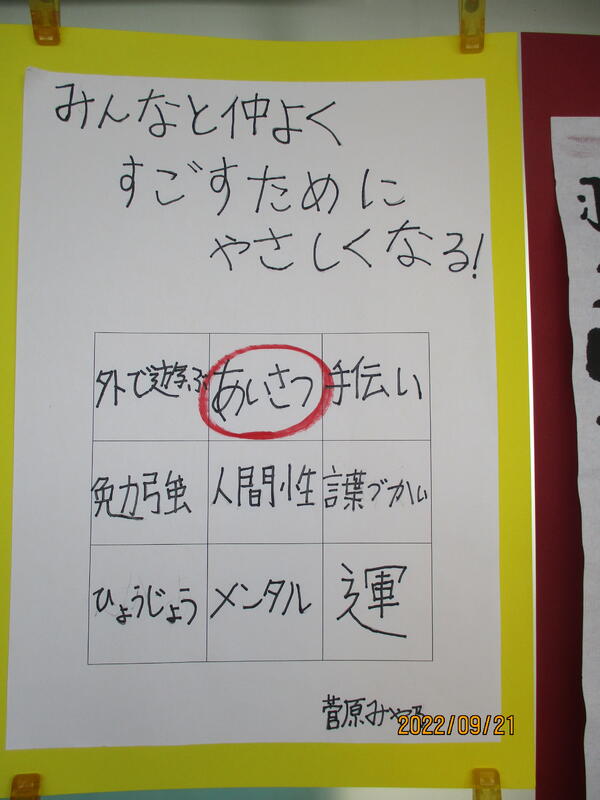 みんなと仲よく
すごすために
やさしくなる!
外で遊ぶ あいさつ 手伝い
勉強 人間性 言葉づかい
ひょうじょう メンタル 運
菅原みや
2022/09/21